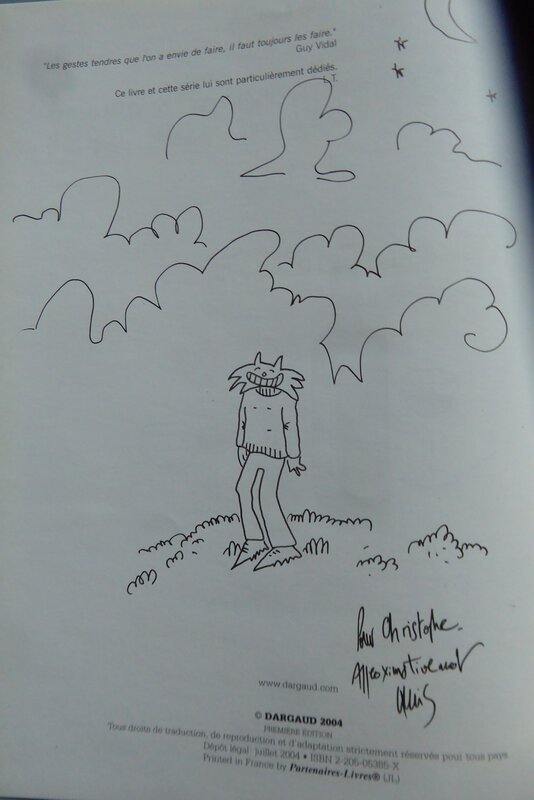 "Les gestes tendres que l'on a envie de faire, il faut toujours les faire."
Guy Vidal
Ce livre et cette série lui sont particulièrement dédiés.
L. T.
Pour Christophe.
Approximativement
www.dargaud.com
© DARGAUD 2004
PREMIÈRE ÉDITION
Tous droits de traduction, de reproduction et d'adaptation strictement réservés pour tous pays.
Dépôt légal juillet 2004 • ISBN 2-205-05385-X
Printed in France by Partenaires-Livres® (JL)